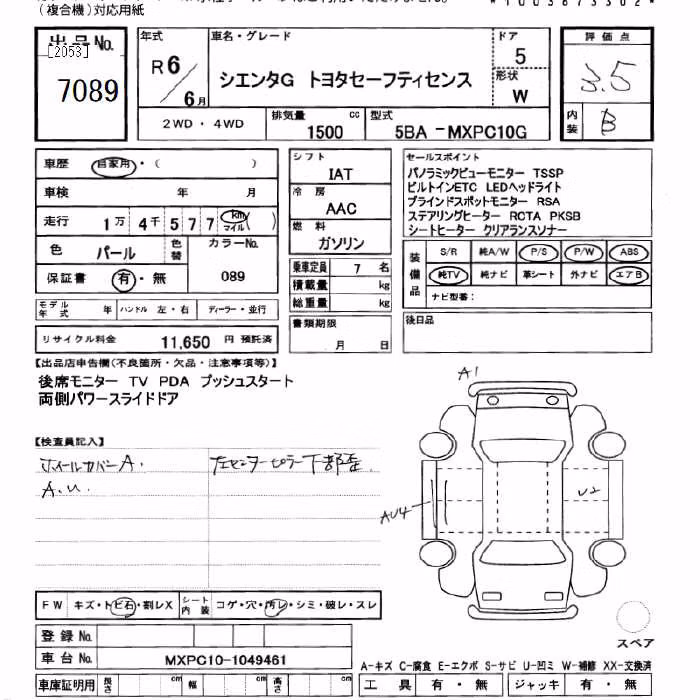 (複合機)対応用紙
*1003873302*
出品No.
[2053]
7089
年式 R6/6月
車名・グレード
シエンタG トヨタセーフティセンス
ドア 5
形状 W
評価点 3.5
内装 B
2WD・4WD
排気量 1500 cc
型式 5BA-MXPC10G
車歴 自家用・( )
車検 年 月
走行 1万4千577 km マイル( )
色 パール 色替
カラーNo. 089
保証書 有・無
モデル年式 年 ハンドル 左・右 ディーラー・並行
リサイクル料金 11,650 円 預託済
シフト IAT
冷房 AAC
燃料 ガソリン
乗車定員 7 名
積載量 kg
総重量 kg
書類期限 月 日
セールスポイント
パノラミックビューモニター TSSP
ビルトインETC LEDヘッドライト
ブラインドスポットモニター RSA
ステアリングヒーター RCTA PKSB
シートヒーター クリアランスソナー
装備品
S/R 純A/W P/S P/W ABS
純TV 純ナビ 革シート 外ナビ エアB
ナビ型番:
後日品
【出品店申告欄(不良箇所・欠品・注意事項等)】
後席モニター TV PDA プッシュスタート
両側パワースライドドア
【検査員記入】
ホイールカバーA.
A.U.
左センターピラー下部歪
A1
AU4
U2
スペア
FW キズ・トビ石・割レX シート内装 コゲ・穴・汚レ・シミ・破レ・スレ
登録No.
車台No. MXPC10-1049461
A-キズ C-腐食 E-エクボ S-サビ U-凹ミ W-補修 XX-交換済
車庫証明用 長さ cm 幅 cm 高さ cm
工具 有・無 ジャッキ 有・無